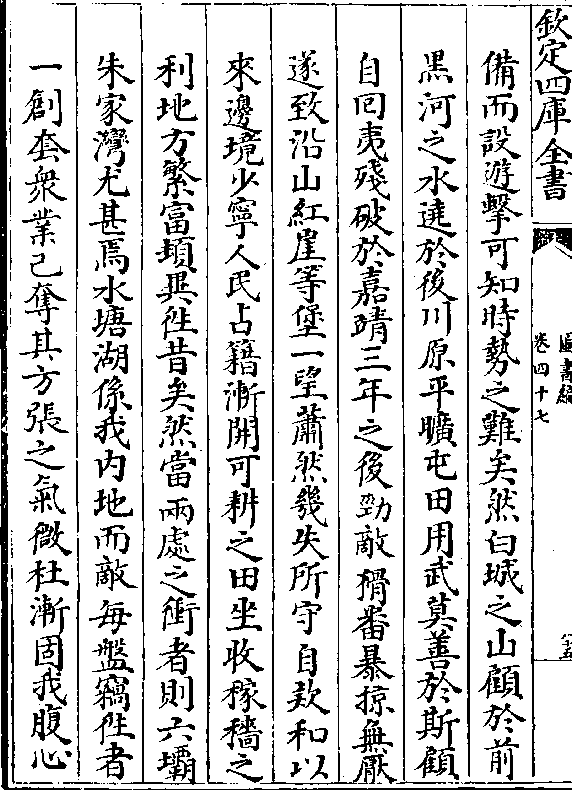 欽定四庫全書
圖書編
卷四十七
備而設遊擊可知時勢之難矣然白城之山顧於前
黑河之水遶於後川原平曠屯田用武莫善於斯顧
自回夷殘破於嘉靖三年之後勁敵猾番暴掠無厭
遂致沿山紅崖等堡一望蕭然幾失所守自欵和以
來邊境少寧人民占籍漸開可耕之田坐收稼穡之
利地方繁富頓異徃昔矣然當兩處之衝者則六壩
朱家灣尤甚焉水塘湖係我内地而敵每盤竊徃者
一創套衆業已奪其方張之氣微杜漸固我腹心